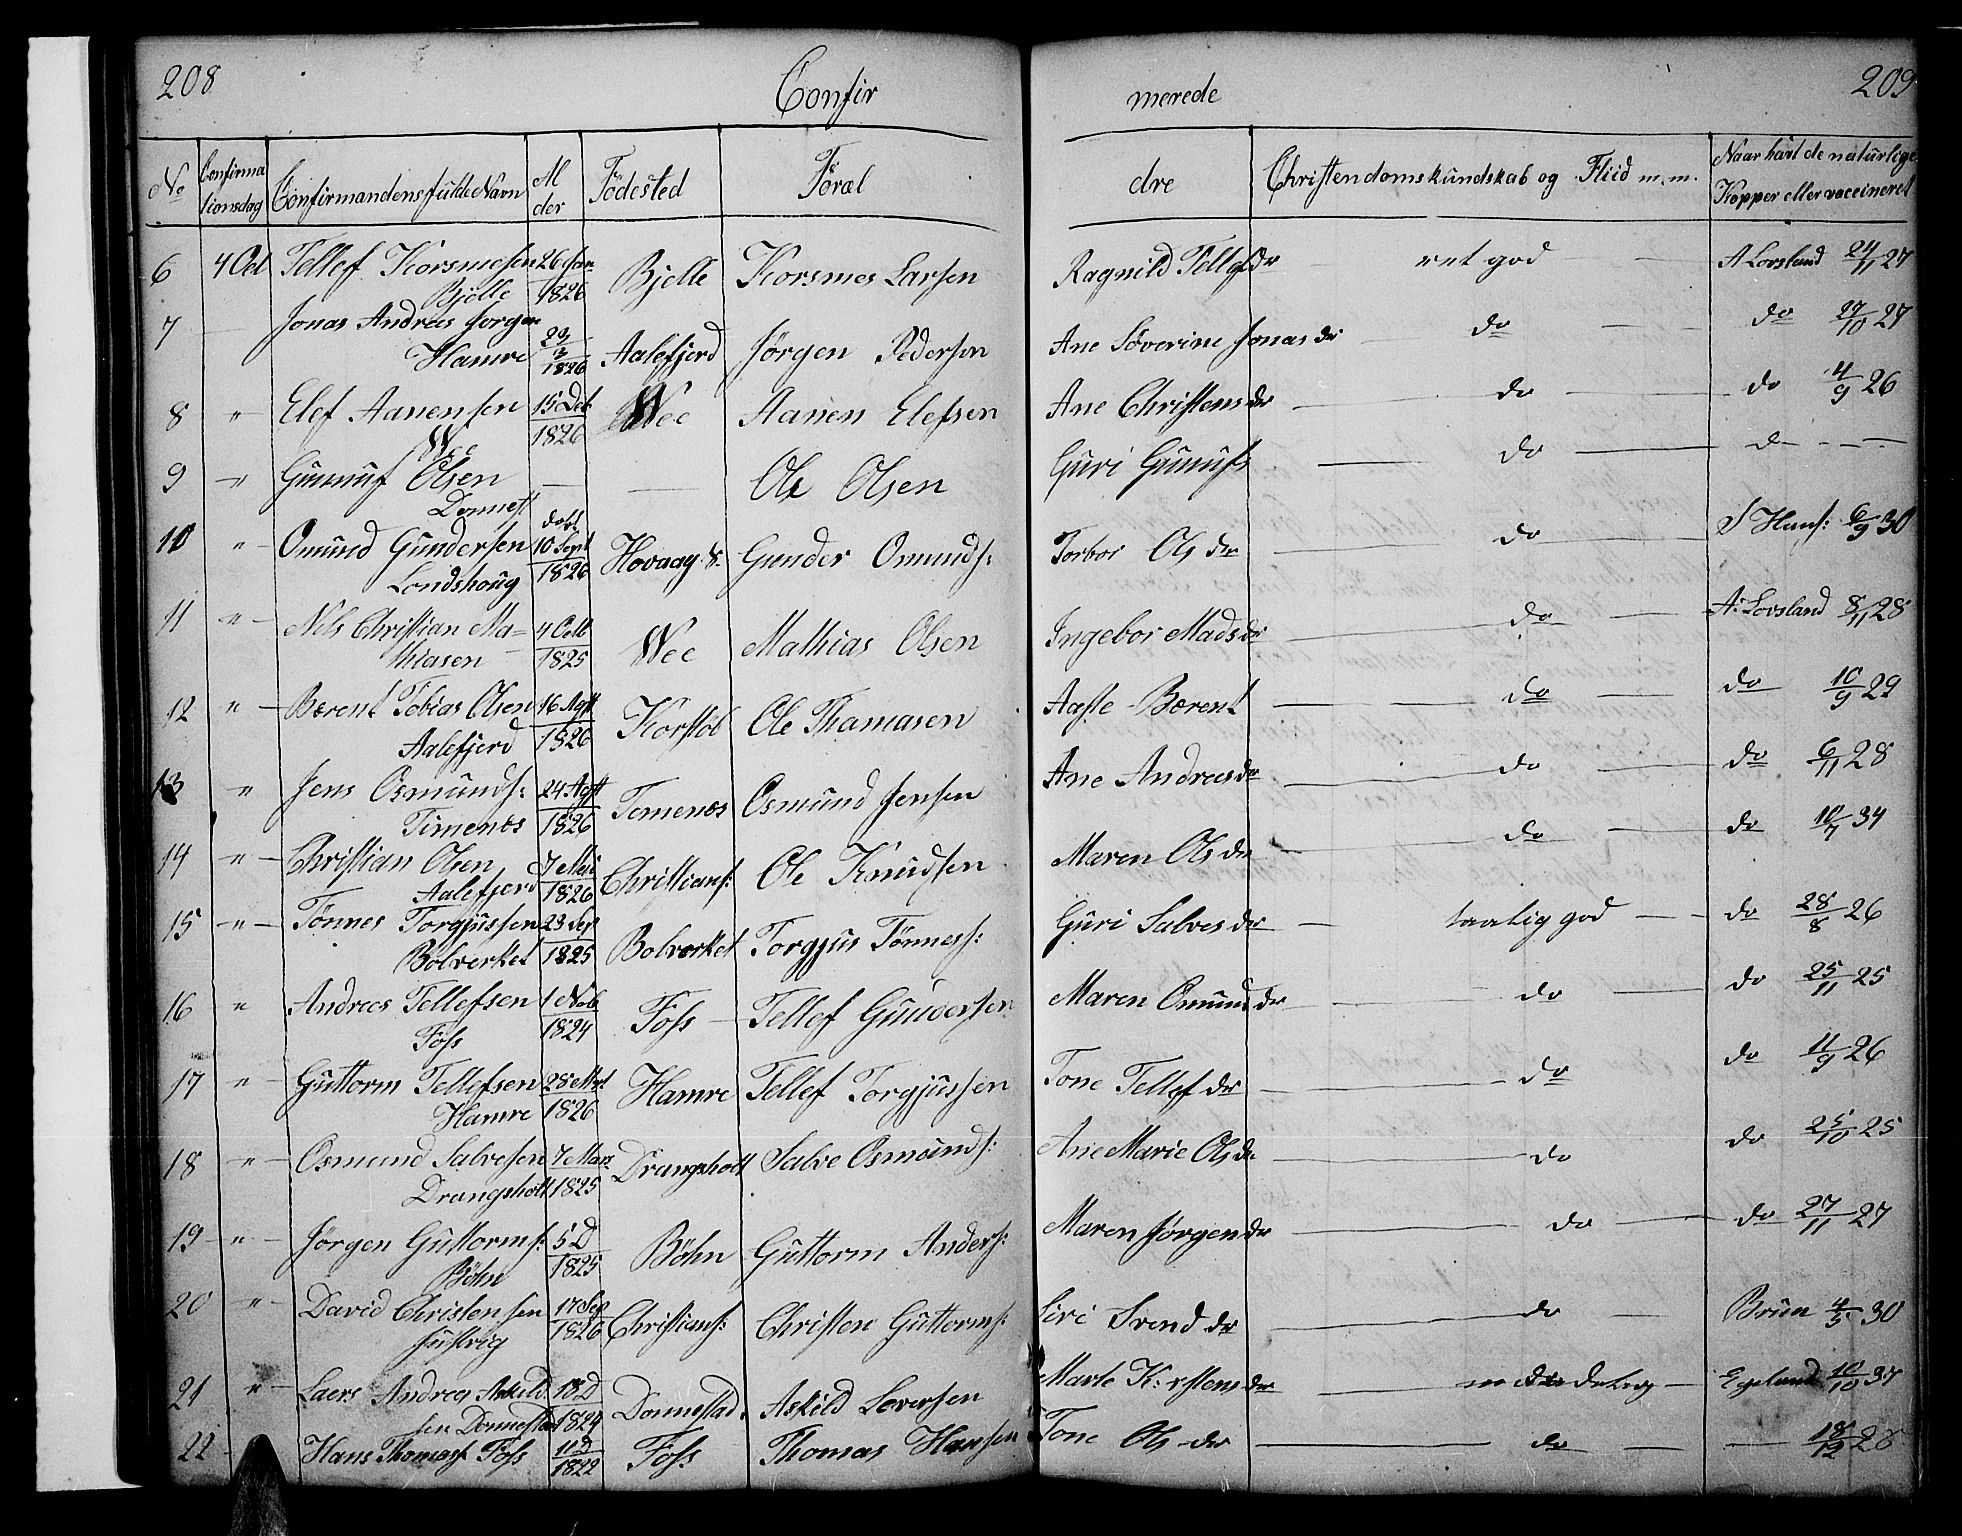 208
Confir
merede
209
No Confirmationsdag Confirmandens fulde Navn Alder Födested Foræl
dre Christendomskundskab og Fliid m.m. Naar havt de naturlige Kopper eller vaccineret
6 4 Oct Tellef Korsmesen 26 Jan Bjelle Korsmes Larsen Ragnild Tellefsdr ret god A Lovsland 24/11 27
Bjelle 1826
7 Jonas Andreas Jørgen 23/3 Aalefjerd Jørgen Pedersen Ane Söverine Jonasdr do do 27/10 27
Hamre 1826
8 " Elef Aanensen 15 Wee Aanen Elefsen Ane Christensdr do do 4/9 26
Wee 1826
9 " Gunnuf Olsen — — Ole Olsen Guri Gunufs do do
Donnest
10 " Omund Gundersen 10 Sept Hovaag S. Gunder Omunds: Torbor Olsdr do S Hans: 6/9 30
Londshoug 1826
11 " Nils Christian Ma= 4 Octb Wee Mathias Olsen Ingebor Madsdr do A: Lovsland 8/11 28
thiasen 1825
12 " Berent Tobias Olsen 16 Agst Korstöl Ole Thomasen Aaste Berent do do 10/9 29
Aalefjerd 1826
13 " Jens Osmunds: 24 Agst Temenes Osmund Jensen Ane Andreasdr do do 6/11 28
Timenes 1826
14 " Christian Olsen 7 Mai Christians: Ole Knudsen Maren Olsdr do do 10/7 34
Aalefjerd 1826
15 " Tönnes Torgjussen 23 Sep Bolverket Torgjus Tönness: Guri Salvesdr taalig god do 28/8 26
Bolverket 1825
16 " Andreas Tellefsen 1 Nob Foss Tellef Gundersen Maren Omundsdr do do 25/11 25
Foss 1824
17 " Guttorm Tellefsen 28 Mrt Hamre Tellef Torgjussen Tone Tellefdr do do 11/9 26
Hamre 1826
18 " Osmund Salvesen 7 Mars Drangsholt Salve Osmunds: Ane Marie Olsdr do do 25/10 25
Drangsholt 1825
19 " Jørgen Guttorms: 5 D Böhn Guttorm Anders: Maren Jørgendr do do 27/11 27
Böhn 1825
20 " David Christensen 17 Sep Christians: Christen Guttorms: Siri Svendsdr do Brun 4/5 30
Justvig 1826
21 " Laers Andreas Askild 18 D Donnestad Askild Leversen Marte Kirstensdr maadelig Egeland 10/10 37
sen Donnestad 1824
22 Hans Thomass Foss 11 D Foss Thomas Hansen Tone Olsdr do 18/12 28
1822